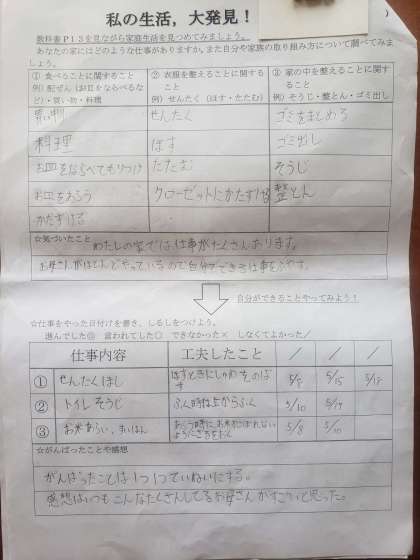 私の生活，大発見！
）
教科書Ｐ１３を見ながら家庭生活を見つめてみましょう。
あなたの家にはどのような仕事がありますか。また自分や家族の取り組み方について調べてみましょう。
① 食べることに関すること
例）配ぜん（お皿をならべるなど）・買い物・料理
② 衣服を整えることに関すること
例）せんたく（ほす・たたむ）
③ 家の中を整えることに関すること
例）そうじ・整とん・ゴミ出し
買い物
せんたく
ゴミをまとめる
料理
ほす
ゴミ出し
お皿をならべてもりつけ
たたむ
そうじ
お皿をあらう
クローゼットにかたずける
整とん
かたずける
☆気づいたこと
わたしの家では仕事がたくさんあります。
お母さんがほとんどやっているので自分でできる仕事をふやす。
自分ができることやってみよう！
☆仕事をやった日付けを書き、しるしをつけよう。
進んでした◎ 言われてした○ できなかった× しなくてよかった／
仕事内容
工夫したこと
／
／
／
①
せんたくほし
ほすときにしわをのばす
5/9
5/15
5/18
②
トイレそうじ
ふく時は上からふく
5/10
5/17
③
お米あらい、すいはん
あらう時にお米がこぼれないように
5/8
5/10
☆がんばったことや感想
がんばったことは1つ1つていねいにする。
感想はいつもこんなたくさんしてるお母さんがすごいと思った。